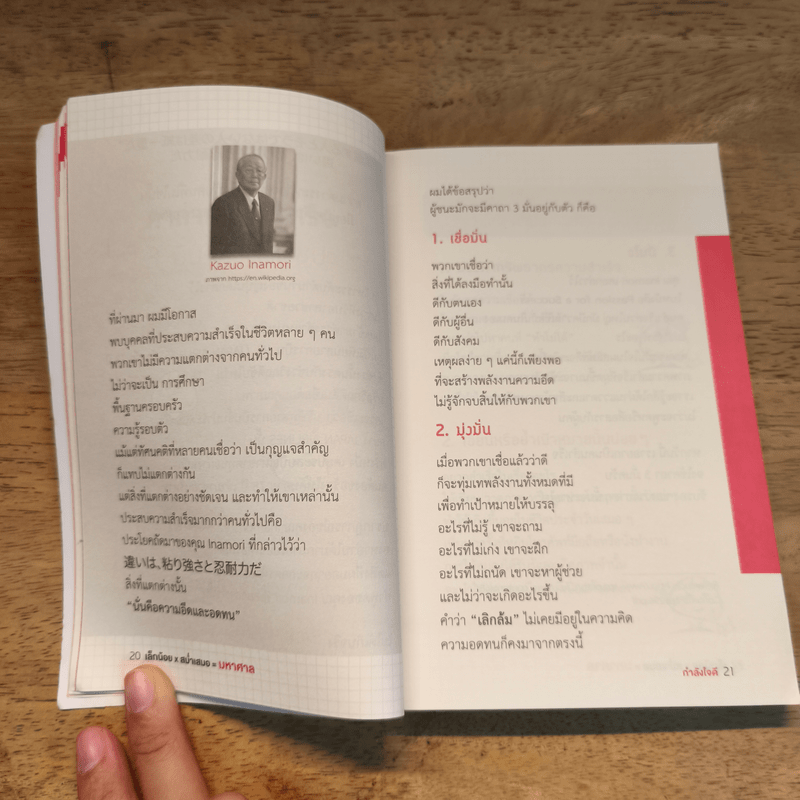 Kazuo Inamori
ภาพจาก https://en.wikipedia.org
ที่ผ่านมา ผมมีโอกาส
พบบุคคลที่ประสบความสำเร็จในชีวิตหลาย ๆ คน
พวกเขาไม่มีความแตกต่างจากคนทั่วไป
ไม่ว่าจะเป็น การศึกษา
พื้นฐานครอบครัว
ความรู้รอบตัว
แม้แต่ทัศนคติที่หลายคนเชื่อว่า เป็นกุญแจสำคัญ
ก็แทบไม่แตกต่างกัน
แต่สิ่งที่แตกต่างอย่างชัดเจน และทำให้เขาเหล่านั้น
ประสบความสำเร็จมากกว่าคนทั่วไปคือ
ประโยคถัดมาของคุณ Inamori ที่กล่าวไว้ว่า
違いは、粘り強さと忍耐力だ
สิ่งที่แตกต่างนั้น
"นั่นคือความอึดและอดทน"
20 เล็กน้อย x สม่ำเสมอ = มหาศาล
ผมได้ข้อสรุปว่า
ผู้ชนะมักจะมีคาถา 3 มั่นอยู่กับตัว ก็คือ
1. เชื่อมั่น
พวกเขาเชื่อว่า
สิ่งที่ได้ลงมือทำนั้น
ดีกับตนเอง
ดีกับผู้อื่น
ดีกับสังคม
เหตุผลง่าย ๆ แค่นี้ก็เพียงพอ
ที่จะสร้างพลังงานความอึด
ไม่รู้จักจบสิ้นให้กับพวกเขา
2. มุ่งมั่น
เมื่อพวกเขาเชื่อแล้วว่าดี
ก็จะทุ่มเทพลังงานทั้งหมดที่มี
เพื่อทำเป้าหมายให้บรรลุ
อะไรที่ไม่รู้ เขาจะถาม
อะไรที่ไม่เก่ง เขาจะฝึก
อะไรที่ไม่ถนัด เขาจะหาผู้ช่วย
และไม่ว่าจะเกิดอะไรขึ้น
คำว่า "เลิกล้ม" ไม่เคยมีอยู่ในความคิด
ความอดทนก็คงมาจากตรงนี้
กำลังใจดี 21